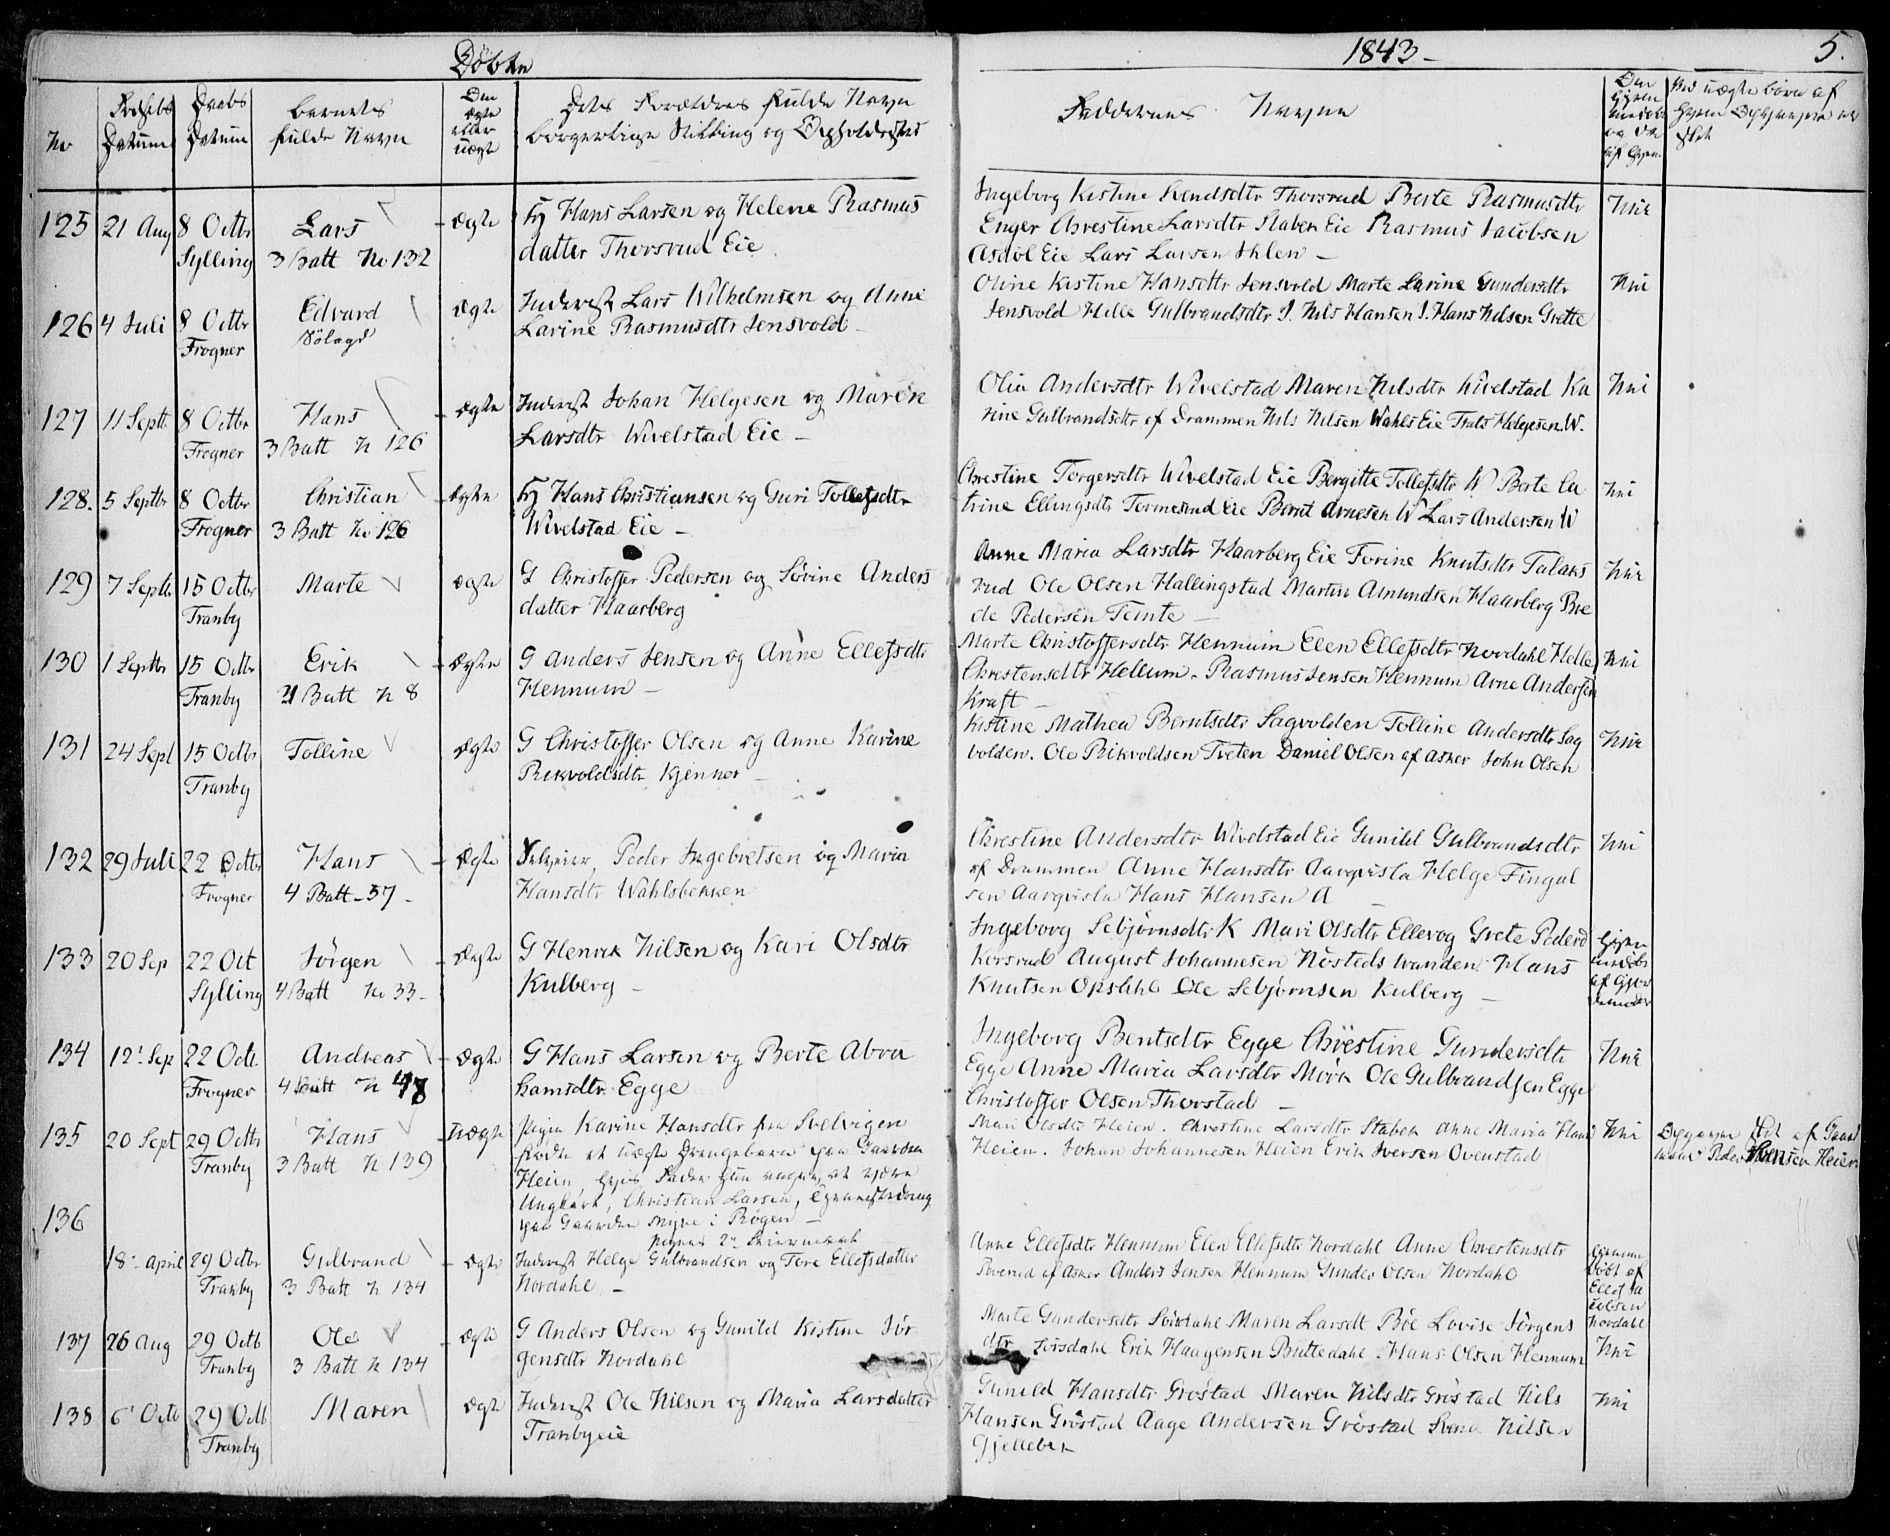 Döbte
1843 –
5.
No
Födsels Datum
Daabs Datum
Barnets fulde Navn
Om ægte eller uægte
Dets Forældres fulde Navn borgerlige Stilling og Opholdssted
Faddernes Navne
125 21 Aug 8 Octbr Lars – Ægte Hans Larsen og Helene Rasmus
Sylling 3 Batt No 132 datter Thorsrud Eie
Ingeborg Kistine Svendsdtr Thorsrud Berte Rasmusdtr
Enger Chrestine Larsdtr Staben Eie Rasmus Jacobsen
Asdöl Eie Lars Larsen Ihlen –
126 4 Juli 8 Octbr Edvard Ægte Inderst Lars Wilhelmsen og Anne
Frogner Larine Rasmusdtr Jensvold –
Oline Kistine Hansdtr Jensvold Marte Larine Gundersdtr
Jensvold Helle Gulbrandsdtr J. Nils Hansen J. Hans Nilsen Grette
127 11 Septb 8 Octbr Hans – Ægte Inderst Johan Helgesen og Maren
Frogner 3 Batt N 126 Larsdtr Wivelstad Eie –
Olia Andersdtr Wivelstad Maren Nilsdtr Wivelstad Ka
rine Gulbrandsdtr af Drammen Nils Nilsen Wahls Eie Helgesen W.
128. 5 Septbr 8 Octbr Christian – Ægte Hans Christiansen og Guri Tollefsdtr
Frogner 3 Batt No 126 Wivelstad Eie –
Chrestine Torgersdtr Wivelstad Eie Bergitte Tollefsdtr W Berte Ca
trine Ellingsdtr Tormesrud Eie Bernt Arnesen W Lars Andersen W
129 7 Septb 15 Octbr Marte Ægte G Christoffer Pedersen og Sövine Anders
Tranby datter Haarberg
Anne Maria Larsdtr Haarberg Eie Torine Knutsdtr Talaks
rud Ole Olsen Hallingstad Martin Amundsen Haarberg Bre
de Pedersen Temte –
130 1 Septbr 15 Octbr Erik – Ægte G Anders Jensen og Anne Ellefsdtr
Tranby Batt N 8 Hennum –
Marte Christoffersdtr Hennum Elen Ellefsdtr Nordahl Helle
Chrestensdtr Hellum. Rasmus Jensen Hennum Arne Andersen
Kraft –
131 24 Sept 15 Octbr Tolline Ægte G Christoffer Olsen og Anne Karine
Tranby Rikvoldsdtr Kjenner –
Kistine Mathea Berntsdtr Sagvolden Tolline Andersdtr Sag
volden. Ole Rikvoldsen Tveten Daniel Olsen af Asker John Olsen
132 29 Juli 22 Octbr Hans – Ægte Selveier Peder Ingebretsen og Maria
Frogner 4 Batt – 57 – Hansdtr Wahlsbekken
Chrestine Andersdtr Wivelstad Eie Gunild Gulbrandsdtr
af Drammen Anne Hansdtr Aarqvisla Helge Fingal
sen Aarqvisla Hans Hansen A –
133 20 Sep 22 Oct Jörgen – Ægte G Henrik Nilsen og Kari Olsdtr
Sylling 4 Batt No 33 – Kulberg –
Ingeborg Sebjörnsdtr K Mari Olsdtr Ellevog Grete Pedersd
Korsrud August Johannesen Nösteds tranden Hans
Knutsen Opsahl Ole Sebjörnsen Kulberg –
134 12 Sep 22 Oct. Andreas – Ægte G Hans Larsen og Berte Abra
Frogner 4 Batt N 48 hamsdtr Egge
Ingeborg Bentsdtr Egge Chrestine Gundersdtr
Egge Anne Maria Larsdtr Mörk Ole Gulbrandsen Egge
Christoffer Olsen Thorstad –
135 20 Sept 29 Octbr Hans – Uægte Pigen Karine Hansdtr fra Svelvigen
Tranby 3 Batt N 139 födte et uægte Drengebarn paa Gaarden
Heien, hvis Fader hun angav at være
Ungkarl, Christian Larsen,
paa Gaarden Myre i Rögen –
Pigens 2 Leiermaal
Mari Olsdtr Heien. Chrestine Larsdtr Staben Anne Maria Hans
Heien. Johan Johannesen Heien Erik Iversen Ovenstad
Opgaven skt af Gaard
mand Peder Heien
136
18 April 29 Octbr Gulbrand – Ægte Inderst Helge Gulbrandsen og Tore Ellefsdatter
Tranby 3 Batt N 134 Nordahl –
Anne Ellefsdtr Hennum Elen Ellefsdtr Nordahl Anne Chrestensdtr
Poverud af Asker Anders Jensen Hennum Gunder Olsen Nordahl
137 26 Aug 29 Octb Ole – Ægte G Anders Olsen og Gunild Kistine Jör
Tranby 3 Batt N 134 gensdtr Nordahl
Marte Gundersdtr Sörsdahl Maren Larsdt Böe Lovise Jörgens
dtr Sörsdahl Erik Haagensen Buttedahl. Hans Olsen Hennum
138 6 Octb 29 Octb Maren Ægte Inderst Ole Nilsen og Maria Larsdatter
Tranby Tranbyeie
Gunild Hansdtr Gröstad Maren Nilsdtr Gröstad Nils
Hansen Gröstad Aage Andersen Gröstad Svend Nilsen
Gjellebek